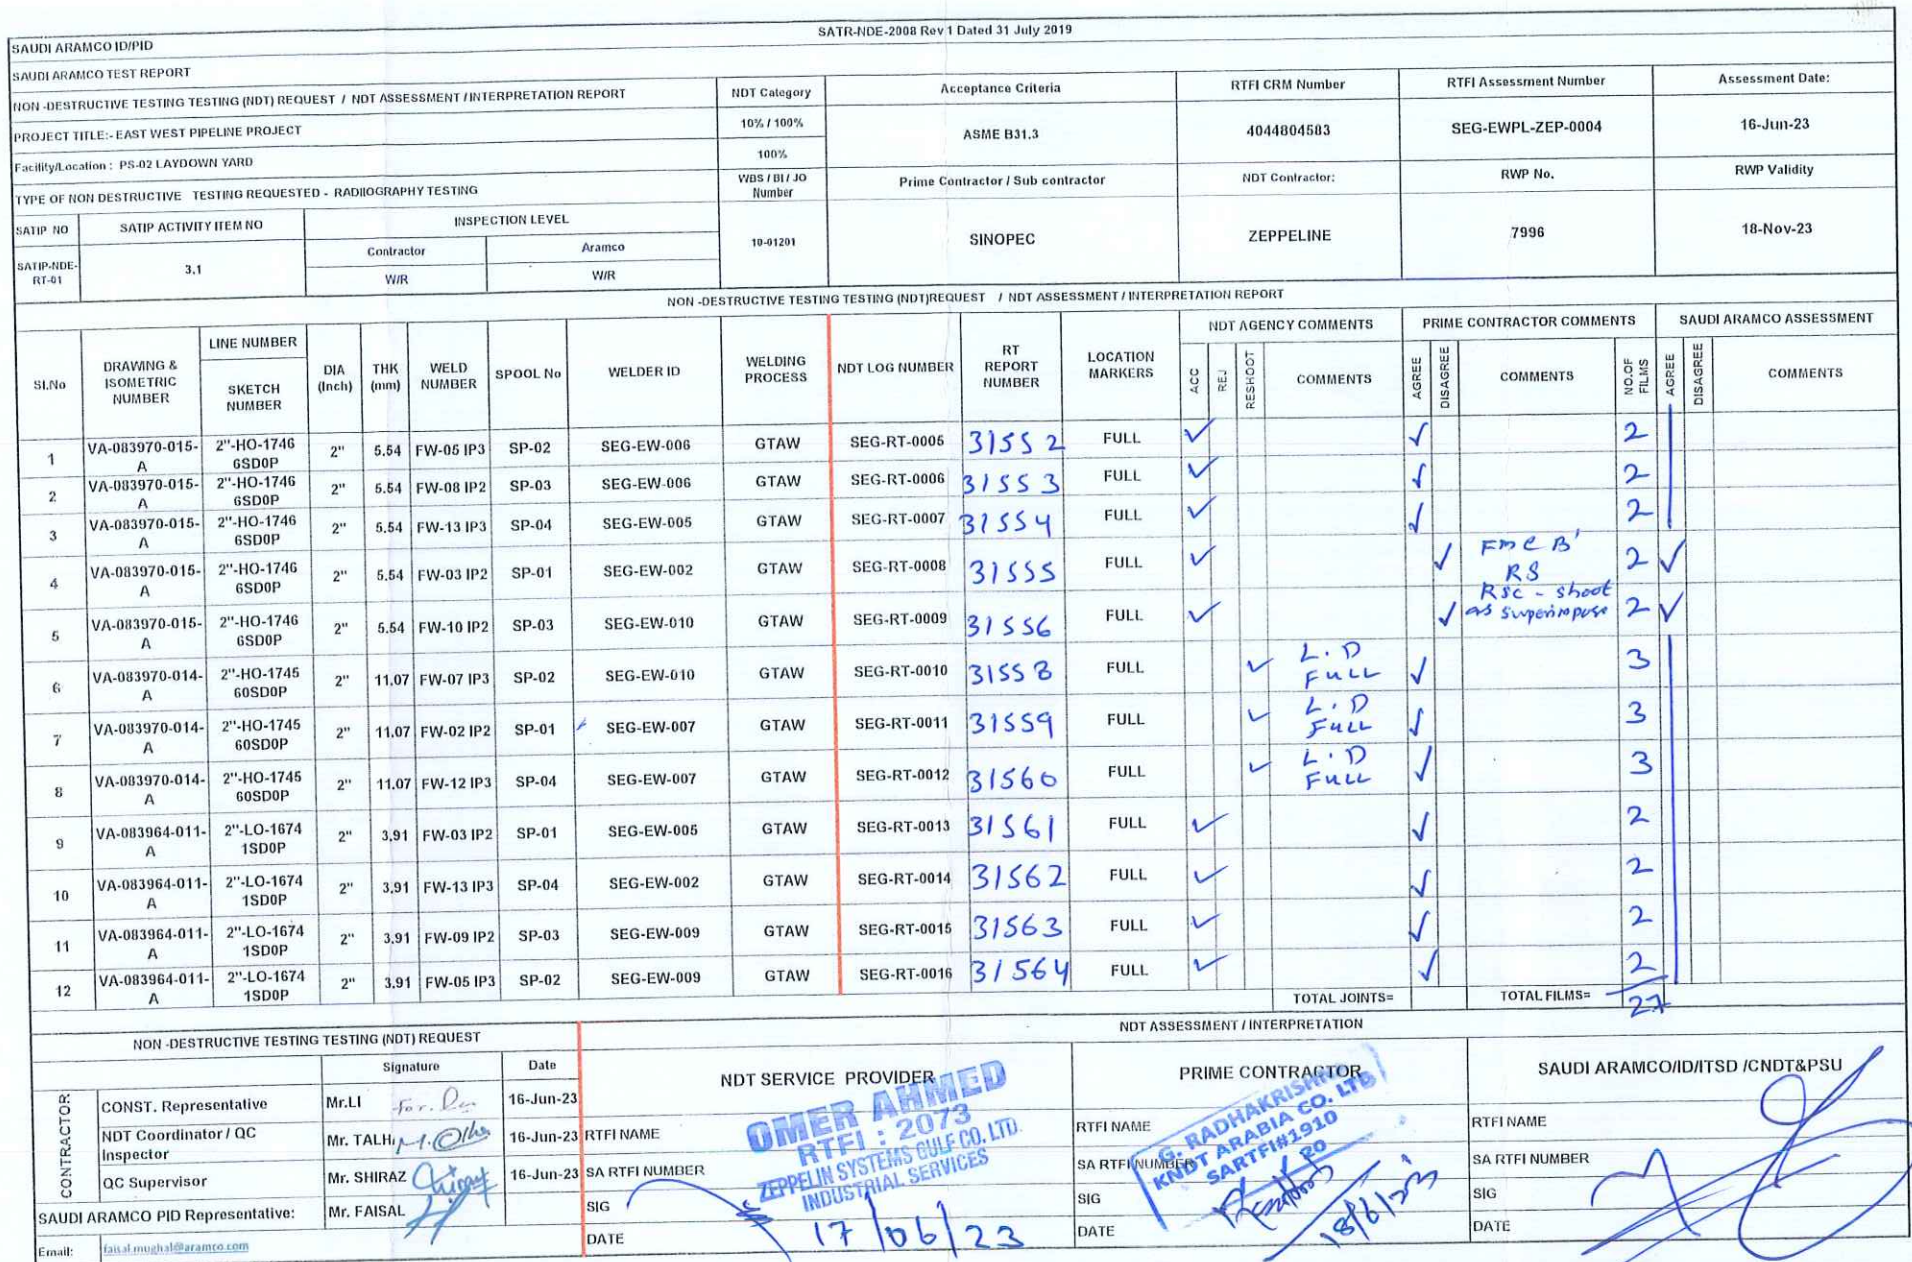 SATR-NDE-2008 Rev 1 Dated 31 July 2019
SAUDI ARAMCO ID/PID
SAUDI ARAMCO TEST REPORT
NON -DESTRUCTIVE TESTING TESTING (NDT) REQUEST / NDT ASSESSMENT / INTERPRETATION REPORT
NDT Category
Acceptance Criteria
RTFI CRM Number
RTFI Assessment Number
Assessment Date:
PROJECT TITLE:- EAST WEST PIPELINE PROJECT
10% / 100%
ASME B31.3
4044804583
SEG-EWPL-ZEP-0004
16-Jun-23
Facility/Location : PS-02 LAYDOWN YARD
100%
TYPE OF NON DESTRUCTIVE TESTING REQUESTED - RADIIOGRAPHY TESTING
WBS / BI / JO Number
Prime Contractor / Sub contractor
NDT Contractor:
RWP No.
RWP Validity
SATIP NO
SATIP ACTIVITY ITEM NO
INSPECTION LEVEL
10-01201
SINOPEC
ZEPPELINE
7996
18-Nov-23
Contractor
Aramco
SATIP-NDE-RT-01
3.1
W/R
W/R
NON -DESTRUCTIVE TESTING TESTING (NDT)REQUEST / NDT ASSESSMENT / INTERPRETATION REPORT
SI.No
DRAWING & ISOMETRIC NUMBER
LINE NUMBER
SKETCH NUMBER
DIA (Inch)
THK (mm)
WELD NUMBER
SPOOL No
WELDER ID
WELDING PROCESS
NDT LOG NUMBER
RT REPORT NUMBER
LOCATION MARKERS
NDT AGENCY COMMENTS
ACC
REJ
RESHOOT
COMMENTS
PRIME CONTRACTOR COMMENTS
AGREE
DISAGREE
COMMENTS
NO.OF FILMS
SAUDI ARAMCO ASSESSMENT
AGREE
DISAGREE
COMMENTS
1 VA-083970-015-A 2"-HO-1746 6SD0P 2" 5.54 FW-05 IP3 SP-02 SEG-EW-006 GTAW SEG-RT-0005 31552 FULL ✓ ✓ 2
2 VA-083970-015-A 2"-HO-1746 6SD0P 2" 5.54 FW-08 IP2 SP-03 SEG-EW-006 GTAW SEG-RT-0006 31553 FULL ✓ ✓ 2
3 VA-083970-015-A 2"-HO-1746 6SD0P 2" 5.54 FW-13 IP3 SP-04 SEG-EW-005 GTAW SEG-RT-0007 31554 FULL ✓ ✓ 2
4 VA-083970-015-A 2"-HO-1746 6SD0P 2" 5.54 FW-03 IP2 SP-01 SEG-EW-002 GTAW SEG-RT-0008 31555 FULL ✓ ✓ RS 2 ✓
5 VA-083970-015-A 2"-HO-1746 6SD0P 2" 5.54 FW-10 IP2 SP-03 SEG-EW-010 GTAW SEG-RT-0009 31556 FULL ✓ ✓ - shoot as superimpose 2 ✓
6 VA-083970-014-A 2"-HO-1745 60SD0P 2" 11.07 FW-07 IP3 SP-02 SEG-EW-010 GTAW SEG-RT-0010 31558 FULL ✓ L.D FULL ✓ 3
7 VA-083970-014-A 2"-HO-1745 60SD0P 2" 11.07 FW-02 IP2 SP-01 SEG-EW-007 GTAW SEG-RT-0011 31559 FULL ✓ L.D FULL ✓ 3
8 VA-083970-014-A 2"-HO-1745 60SD0P 2" 11.07 FW-12 IP3 SP-04 SEG-EW-007 GTAW SEG-RT-0012 31560 FULL ✓ L.D FULL ✓ 3
9 VA-083964-011-A 2"-LO-1674 1SD0P 2" 3.91 FW-03 IP2 SP-01 SEG-EW-005 GTAW SEG-RT-0013 31561 FULL ✓ ✓ 2
10 VA-083964-011-A 2"-LO-1674 1SD0P 2" 3.91 FW-13 IP3 SP-04 SEG-EW-002 GTAW SEG-RT-0014 31562 FULL ✓ ✓ 2
11 VA-083964-011-A 2"-LO-1674 1SD0P 2" 3.91 FW-09 IP2 SP-03 SEG-EW-009 GTAW SEG-RT-0015 31563 FULL ✓ ✓ 2
12 VA-083964-011-A 2"-LO-1674 1SD0P 2" 3.91 FW-05 IP3 SP-02 SEG-EW-009 GTAW SEG-RT-0016 31564 FULL ✓ ✓ 2
TOTAL JOINTS= TOTAL FILMS= 27
NON -DESTRUCTIVE TESTING TESTING (NDT) REQUEST
NDT ASSESSMENT / INTERPRETATION
Signature
Date
CONTRACTOR
CONST. Representative Mr.LI 16-Jun-23
NDT Coordinator / QC Inspector Mr. TALH 16-Jun-23
QC Supervisor Mr. SHIRAZ 16-Jun-23
SAUDI ARAMCO PID Representative: Mr. FAISAL
Email: faisal.mughal@aramco.com
NDT SERVICE PROVIDER
RTFI NAME
SA RTFI NUMBER
SIG
DATE
OMER AHMED
RTFI : 2073
ZEPPELIN SYSTEMS GULF CO. LTD.
INDUSTRIAL SERVICES
17/06/23
PRIME CONTRACTOR
RTFI NAME
SA RTFI NUMBER
SIG
DATE
G. RADHAKRISHNA
KNDT ARABIA CO. LTD
SARTFI#1910
18/6/2023
SAUDI ARAMCO/ID/ITSD /CNDT&PSU
RTFI NAME
SA RTFI NUMBER
SIG
DATE